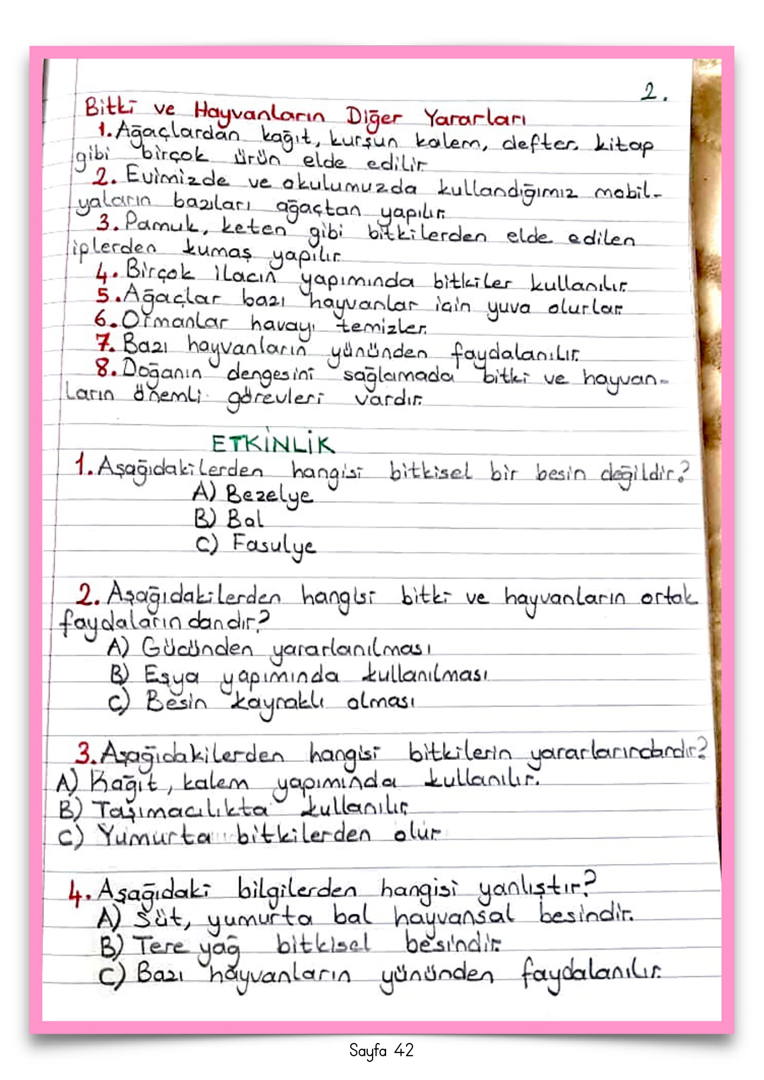 2.
Bitki ve Hayvanların Diğer Yararları
1. Ağaçlardan kağıt, kurşun kalem, defter, kitap
gibi birçok ürün elde edilir.
2. Evimizde ve okulumuzda kullandığımız mobil-
yaların bazıları ağaçtan yapılır.
3. Pamuk, keten gibi bitkilerden elde edilen
iplerden kumaş yapılır.
4. Birçok ilacın yapımında bitkiler kullanılır.
5. Ağaçlar bazı hayvanlar için yuva olurlar.
6. Ormanlar havayı temizler.
7. Bazı hayvanların yününden faydalanılır.
8. Doğanın dengesini sağlamada bitki ve hayvan-
ların önemli görevleri vardır.
ETKİNLİK
1. Aşağıdakilerden hangisi bitkisel bir besin değildir?
A) Bezelye
B) Bal
C) Fasulye
2. Aşağıdakilerden hangisi bitki ve hayvanların ortak
faydalarındandır?
A) Gücünden yararlanılması
B) Eşya yapımında kullanılması
C) Besin kaynaklı olması
3. Aşağıdakilerden hangisi bitkilerin yararlarındandır?
A) Kağıt, kalem yapımında kullanılır.
B) Taşımacılıkta kullanılır.
C) Yumurta bitkilerden olur
4. Aşağıdaki bilgilerden hangisi yanlıştır?
A) Süt, yumurta bal hayvansal besindir.
B) Tere yağ bitkisel besindir.
C) Bazı hayvanların yününden faydalanılır.
Sayfa 42